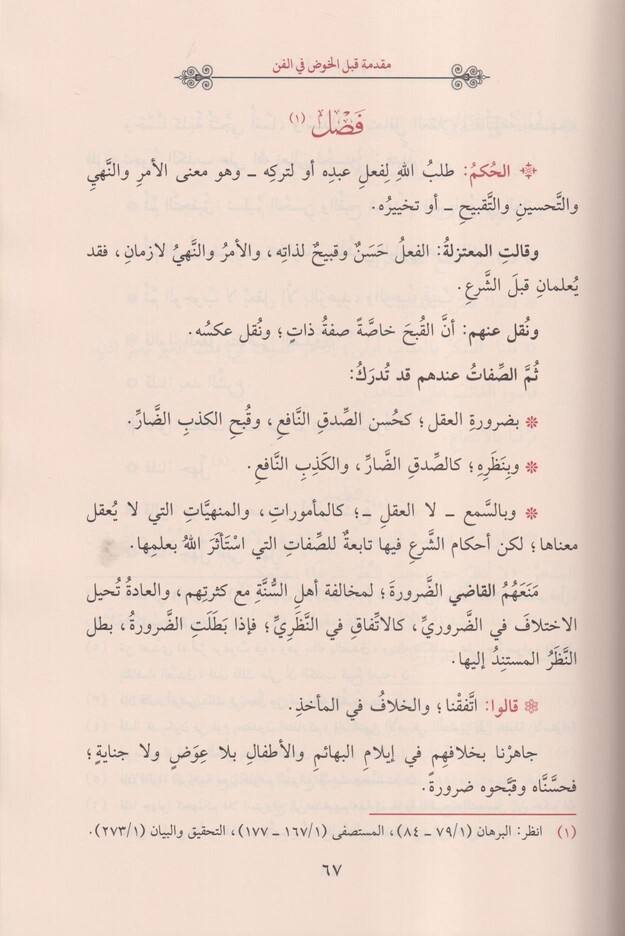 مقدمة قبل الخوض في الفن
فَصْلٌ (١)
الحُكمُ: طلبُ اللهِ لِفعلِ عبدِه أو لتركِه ـ وهو معنى الأمرِ والنَّهيِ
والتَّحسينِ والتَّقبيحِ ـ أو تخييرُه.
وقالتِ المعتزلةُ: الفعلُ حَسَنٌ وقبيحٌ لذاتِه، والأمرُ والنَّهيُ لازمانِ، فقد
يُعلمانِ قبلَ الشَّرعِ.
ونُقل عنهم: أنَّ القُبحَ خاصَّةً صفةُ ذاتٍ؛ ونُقل عكسُه.
ثُمَّ الصِّفاتُ عندهم قد تُدرَكُ:
بضرورةِ العقل؛ كحُسن الصِّدقِ النَّافعِ، وقُبحِ الكذبِ الضَّارِّ.
وبِنَظَرِهِ؛ كالصِّدقِ الضَّارِّ، والكَذِبِ النَّافعِ.
وبالسَّمع ـ لا العقلِ ـ؛ كالمأموراتِ، والمنهيَّاتِ التي لا يُعقل
معناها؛ لكن أحكام الشَّرعِ فيها تابعةٌ للصِّفاتِ التي اسْتَأثَرَ اللهُ بعلمِها.
مَنَعَهُمُ القاضي الضَّرورةَ؛ لمخالفة أهلِ السُّنَّةِ مع كثرتِهم، والعادةُ تُحيل
الاختلافَ في الضَّروريِّ، كالاتِّفاقِ في النَّظَرِيِّ؛ فإذا بَطَلَتِ الضَّرورةُ، بطل
النَّظَرُ المستنِدُ إليها.
قالوا: اتَّفقْنا؛ والخلافُ في المأخذِ.
جاهرْنا بخلافِهِم في إيلامِ البهائمِ والأطفالِ بلا عِوَضٍ ولا جنايةٍ؛
فحسَّنَّاه وقبَّحوه ضرورةً.
(١) انظر: البرهان (٧٩/١ ـ ٨٤)، المستصفى (١٦٧/١ ـ ١٧٧)، التحقيق والبيان (٢٧٣/١).
٦٧